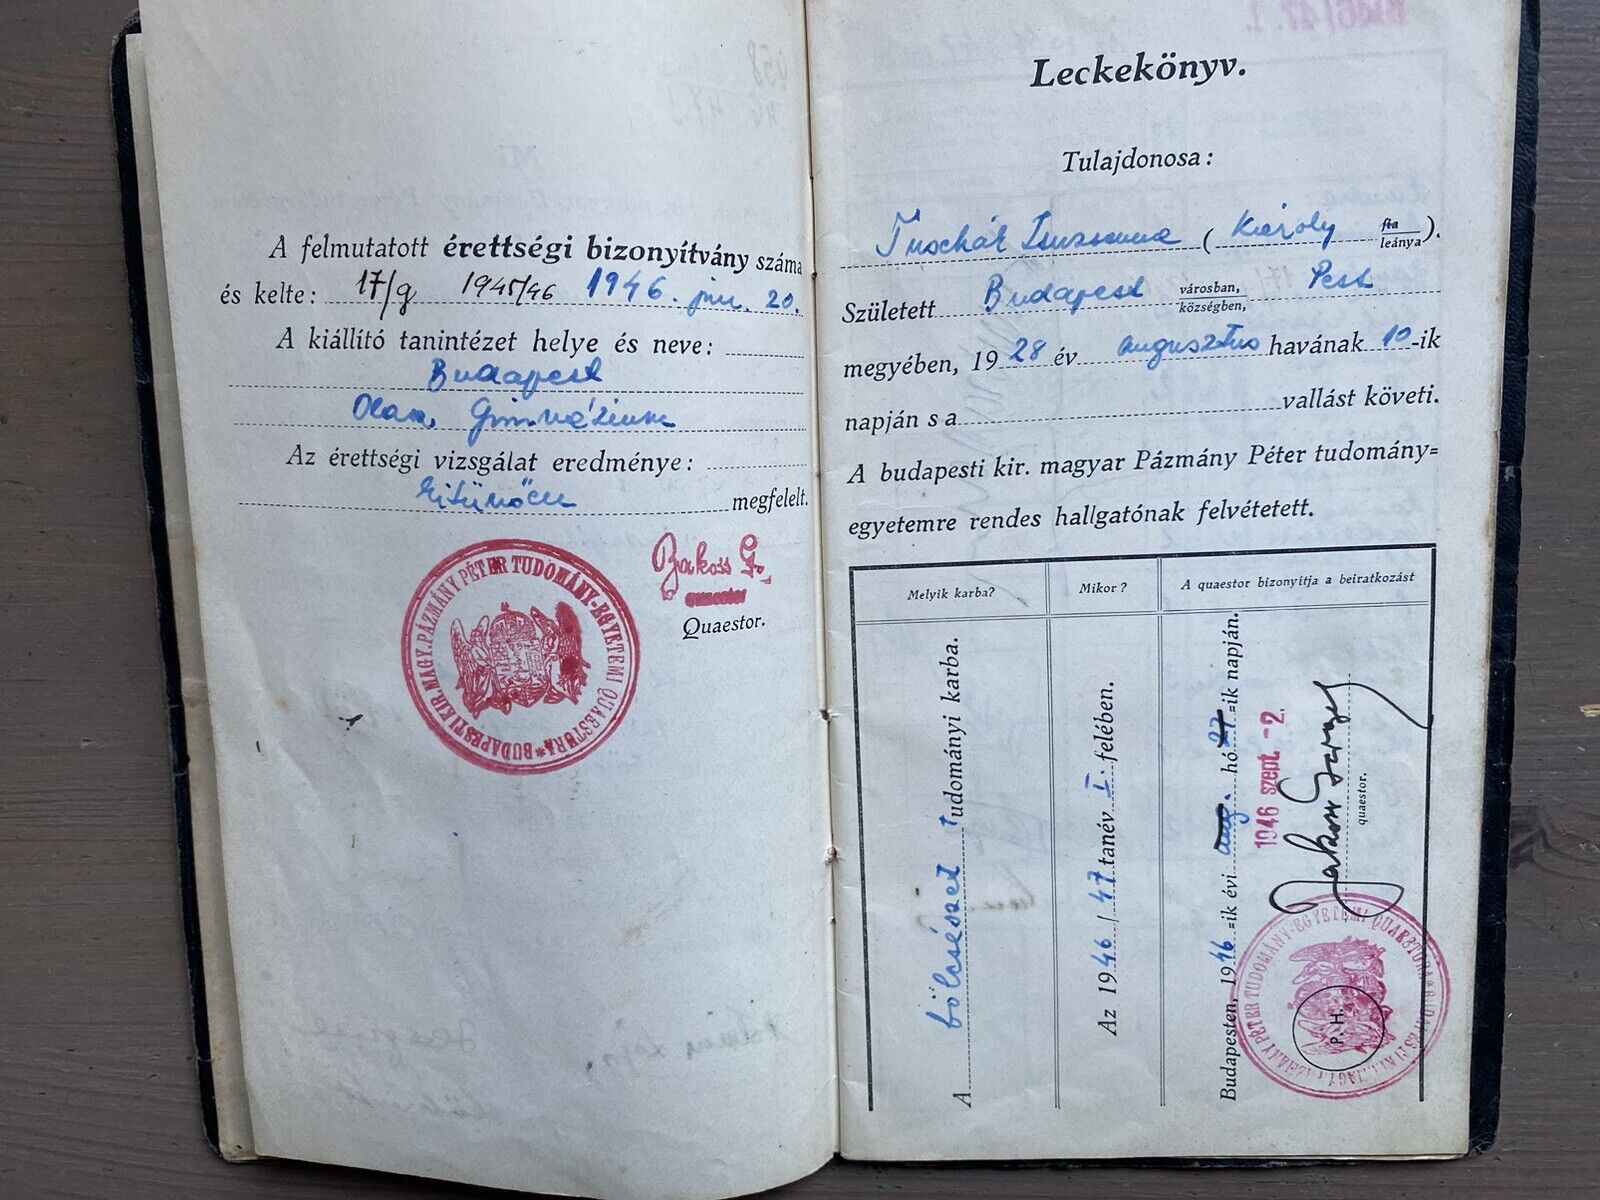 A felmutatott érettségi bizonyítvány száma
és kelte: 17/g 1945/46 1946. jun. 20.
A kiállító tanintézet helye és neve:
Budapest
Olasz Gimnázium
Az érettségi vizsgálat eredménye:
kitünően megfelelt.
Bakoss G.
quaestor
Quaestor.
BUDAPESTI KIR. MAGY. PÁZMÁNY PÉTER TUDOMÁNY-EGYETEMI QUAESTURA
Leckekönyv.
Tulajdonosa:
Zsuzsanna (Károly fia leánya).
Született Budapest városban, községben, Pest
megyében, 1928 év augusztus havának 10-ik
napján s a vallást követi.
A budapesti kir. magyar Pázmány Péter tudomány=
egyetemre rendes hallgatónak felvétetett.
Melyik karba?
Mikor?
A quaestor bizonyítja a beiratkozást
A bölcsészet tudományi karba.
Az 1946/47 tanév I. felében.
Budapesten, 1946=ik évi aug. hó 27=ik napján.
1946 szept. -2.
quaestor.
P. H.